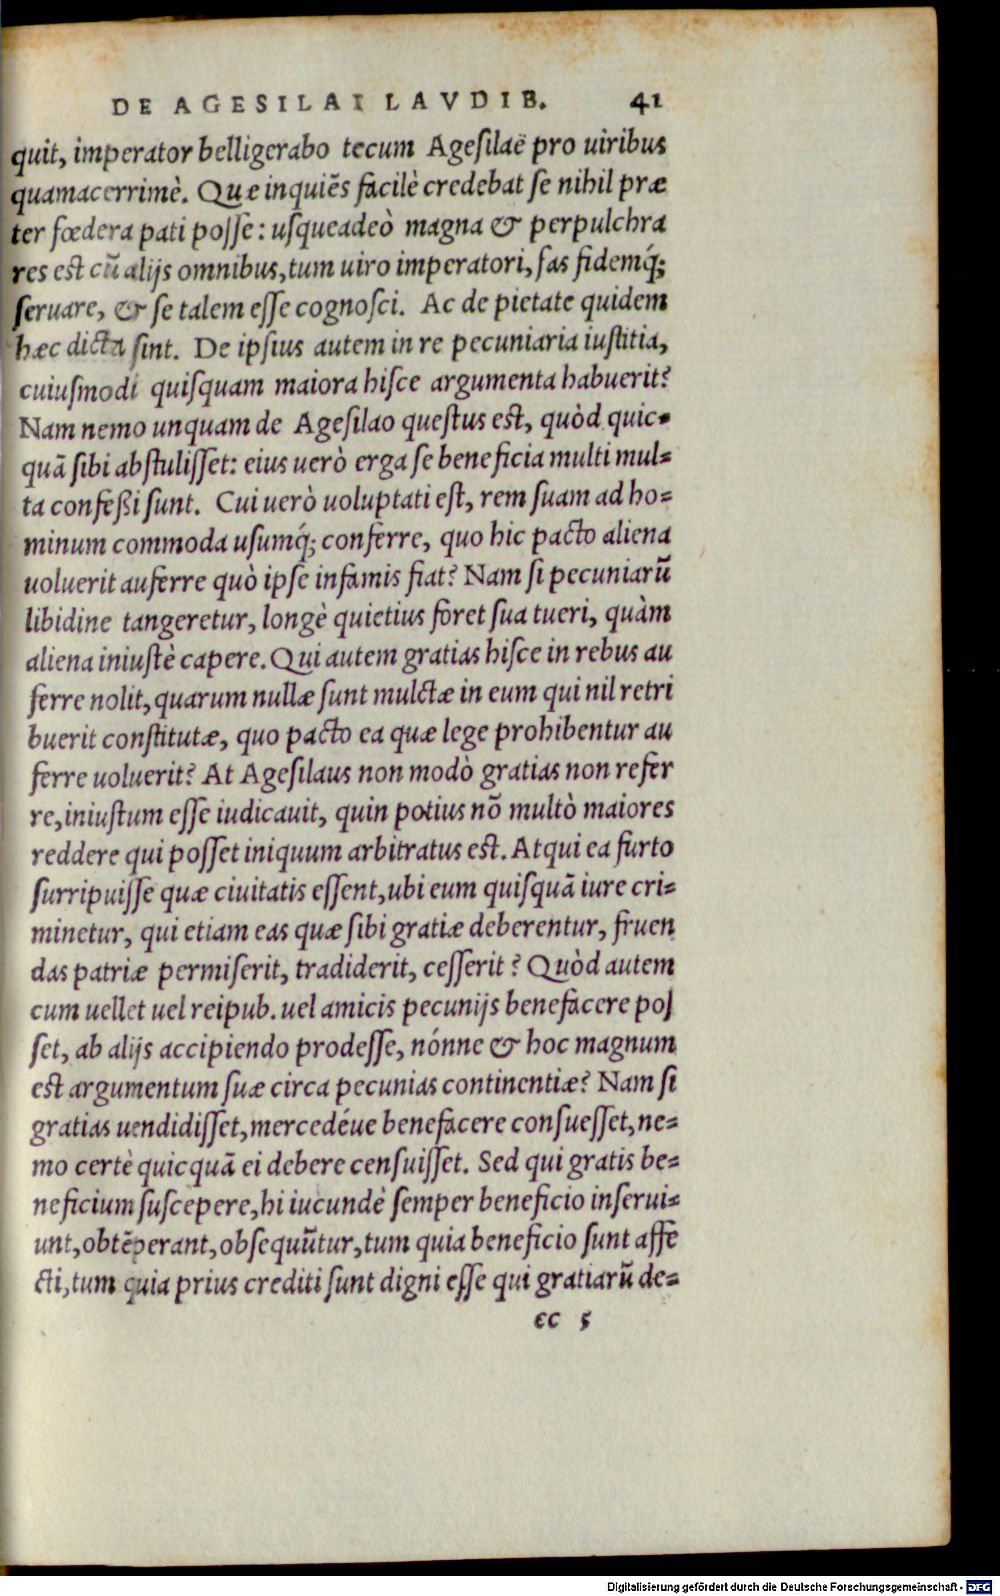 DE AGESILAI LAVDIB. 41
quit, imperator belligerabo tecum Ageſilaë pro uiribus
quamacerrimè. Quæ inquiẽs facilè credebat ſe nihil præ
ter fœdera pati poſſe: uſqueadeò magna & perpulchra
res est cũ alijs omnibus, tum uiro imperatori, fas fidemq́;
ſeruare, & ſe talem eſſe cognoſci. Ac de pietate quidem
hæc dicta ſint. De ipſius autem in re pecuniaria iuſtitia,
cuiuſmodi quiſquam maiora hiſce argumenta habuerit?
Nam nemo unquam de Ageſilao queſtus est, quòd quic-
quã ſibi abſtuliſſet: eius uerò erga ſe beneficia multi mul=
ta confeßi ſunt. Cui uerò uoluptati est, rem ſuam ad ho=
minum commoda uſumq́; conferre, quo hic pacto aliena
uoluerit auferre quò ipſe infamis fiat? Nam ſi pecuniarũ
libidine tangeretur, longè quietius foret ſua tueri, quàm
aliena iniuſtè capere. Qui autem gratias hiſce in rebus au
ferre nolit, quarum nullæ ſunt mulctæ in eum qui nil retri
buerit conſtitutæ, quo pacto ea quæ lege prohibentur au
ferre uoluerit? At Ageſilaus non modò gratias non refer
re, iniuſtum eſſe iudicauit, quin potius nõ multò maiores
reddere qui poſſet iniquum arbitratus est. Atqui ea furto
ſurripuiſſe quæ ciuitatis eſſent, ubi eum quiſquã iure cri=
minetur, qui etiam eas quæ ſibi gratiæ deberentur, fruen
das patriæ permiſerit, tradiderit, ceſſerit? Quòd autem
cum uellet uel reipub. uel amicis pecunijs benefacere poſ
ſet, ab alijs accipiendo prodeſſe, nónne & hoc magnum
est argumentum ſuæ circa pecunias continentiæ? Nam ſi
gratias uendidiſſet, mercedéue benefacere conſueſſet, ne=
mo certè quicquã ei debere cenſuiſſet. Sed qui gratis be=
neficium ſuſcepere, hi iucundè ſemper beneficio inſerui=
unt, obtẽperant, obſequũtur, tum quia beneficio ſunt affe
cti, tum quia prius crediti ſunt digni eſſe qui gratiarũ de=
cc 5
Digitalisierung gefördert durch die Deutsche Forschungsgemeinschaft - DFG